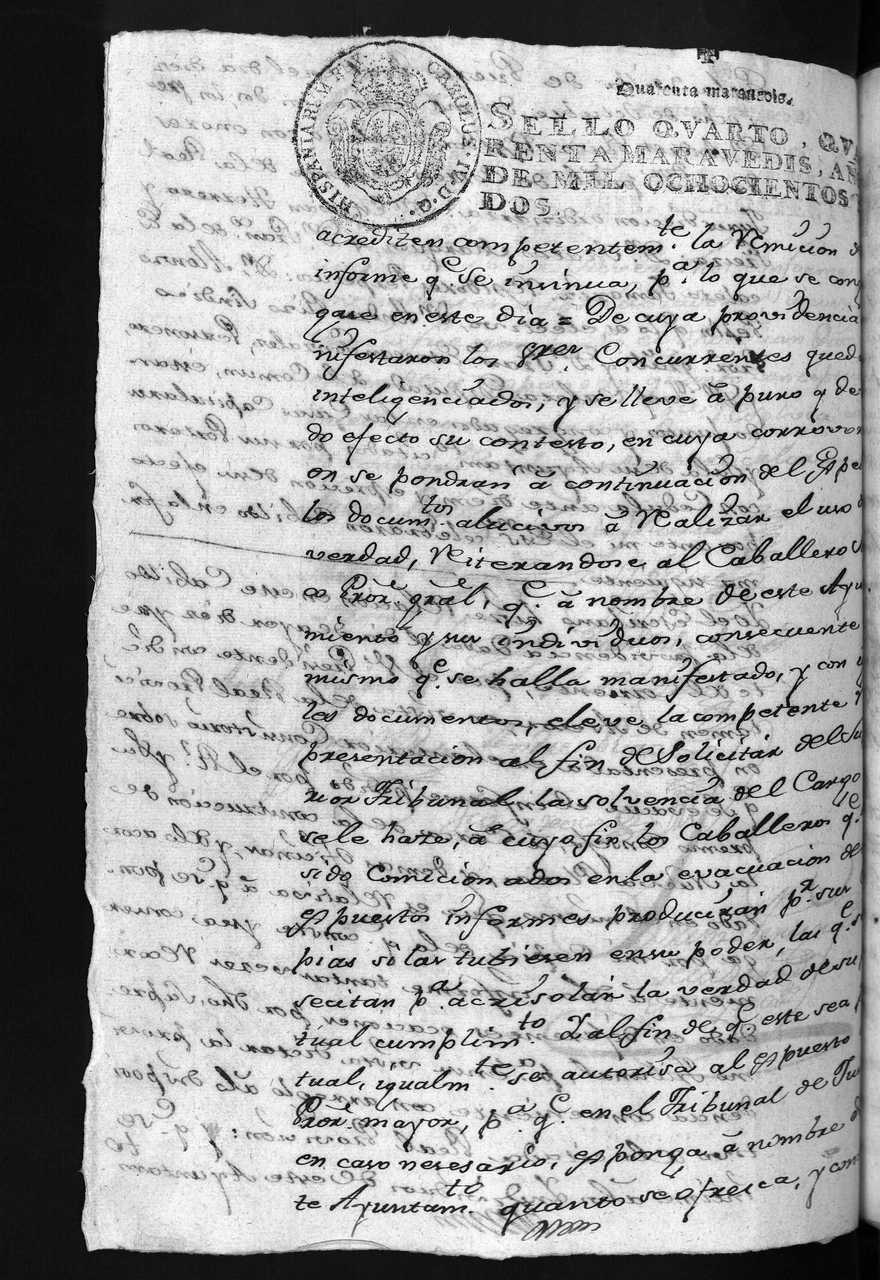 Quarenta maravedis.
HISPANIARUM REX CAROLUS IV D G
SELLO QVARTO, QVA
RENTA MARAVEDIS, AÑ
DE MIL OCHOCIENTOS
DOS.
acrediten competentem.te la Remicion d
informe q.e Se insinua, p.a lo que se con
gase en este dia = De cuya providencia
nifestaron los Sres. Concurrentes qued
inteligenciados, y se lleve â puro y de
do efecto su contesto, en cuya corrovor
on se pondran â continuacion del Espe
los docum.tos alucivos â Realizar el uso
verdad, Reiterandose, al Caballero
Pror. gral, q.e â nombre de este Ayun
miento y sus individuos, consecuente
mismo q.e se halla manifestado, y con
los documentos, eleve la competente R
presentacion al fin de Solicitar del Su
rior Tribunal la solvencia del Cargo
se le haze, â cuyo fin los Caballeros q.e
sido Comicionados en la evacuacion de
espuestos informes produciran p.r sus
pias si las tubiesen en su poder, las q.e
secitan p.a acrisolar la verdad de su
tual cumplim.to Y al fin de q.e este sea
tual, igualm.te se autorisa al espuesto
Pror. mayor, p.a q.e en el Tribunal de Ju
en caso nesesario, esponga â nombre d
te Ayuntam.to quanto se ofresca, y con